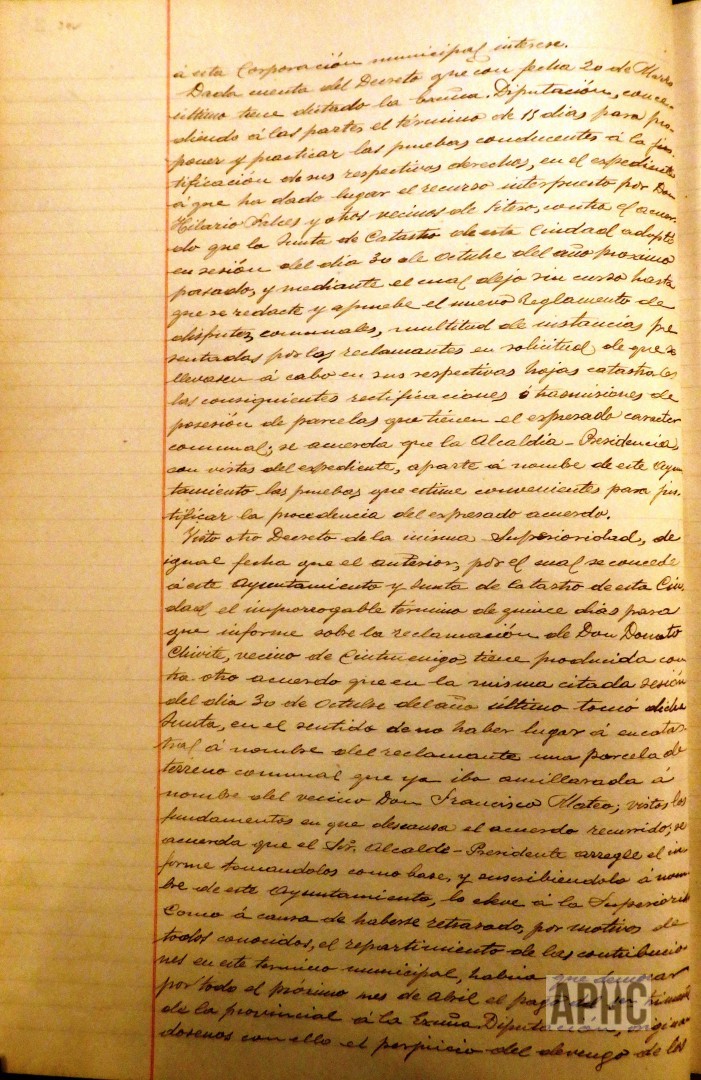 á esta Corporación municipal interese.
Dada cuenta del Decreto que con fecha 20 de Marzo
último tiene dictado la Excma. Diputación, conce-
diendo á las partes el término de 15 dias para pro-
poner y practicar las pruebas conducentes á la jus-
tificación de sus respectivos derechos, en el expediente
á que ha dado lugar el recurso interpuesto por Don
Hilario y otros vecinos de Fitero, contra el acuer-
do que la Junta de Catastro de esta Ciudad adoptó
en sesión del día 30 de Octubre del año proximo
pasado, y mediante el cual dejó sin curso hasta
que se redacte y apruebe el nuevo Reglamento de
disfrutes comunales, multitud de instancias pre
sentadas por los reclamantes en solicitud de que se
llevasen á cabo en sus respectivas hojas catastrales
las consiguientes rectificaciones ó trasmisiones de
posesión de parcelas que tienen el expresado carácter
comunal; se acuerda que la Alcaldía-Presidencia,
con vistas del expediente, aparte á nombre de este Ayun
tamiento las pruebas que estime convenientes para jus-
tificar la procedencia del expresado acuerdo.
Visto otro Decreto de la misma Superioridad, de
igual fecha que el anterior, por el cual se concede
á este Ayuntamiento y Junta de Catastro de esta Ciu-
dad el improrrogable término de quince dias para
que informe sobre la reclamación de Don Donato
Chivite, vecino de Cintruenigo, tiene producida con
tra otro acuerdo que en la misma citada sesión
del dia 30 de Octubre del año último tomó dicha
Junta, en el sentido de no haber lugar á encatas-
trar á nombre del reclamante una parcela de
terreno comunal que ya iba amillarada á
nombre del vecino Don Francisco Mateo; vistos los
fundamentos en que descansa el acuerdo recurrido; se
acuerda que el Sr. Alcalde-Presidente arregle el in
forme tomandolos como base, y suscribiéndolo á nom
bre de este Ayuntamiento, lo eleve á la Superioridad
Como á causa de haberse retrasado, por motivos de
todos conocidos, el repartimiento de las contribucio
nes en este termino municipal, habria que demorar
por todo el próximo mes de Abril el pago del trimestre
de la provincial á la Excma. Diputación, originan
dosenos con ello el perjuicio del devengo de los
APHC